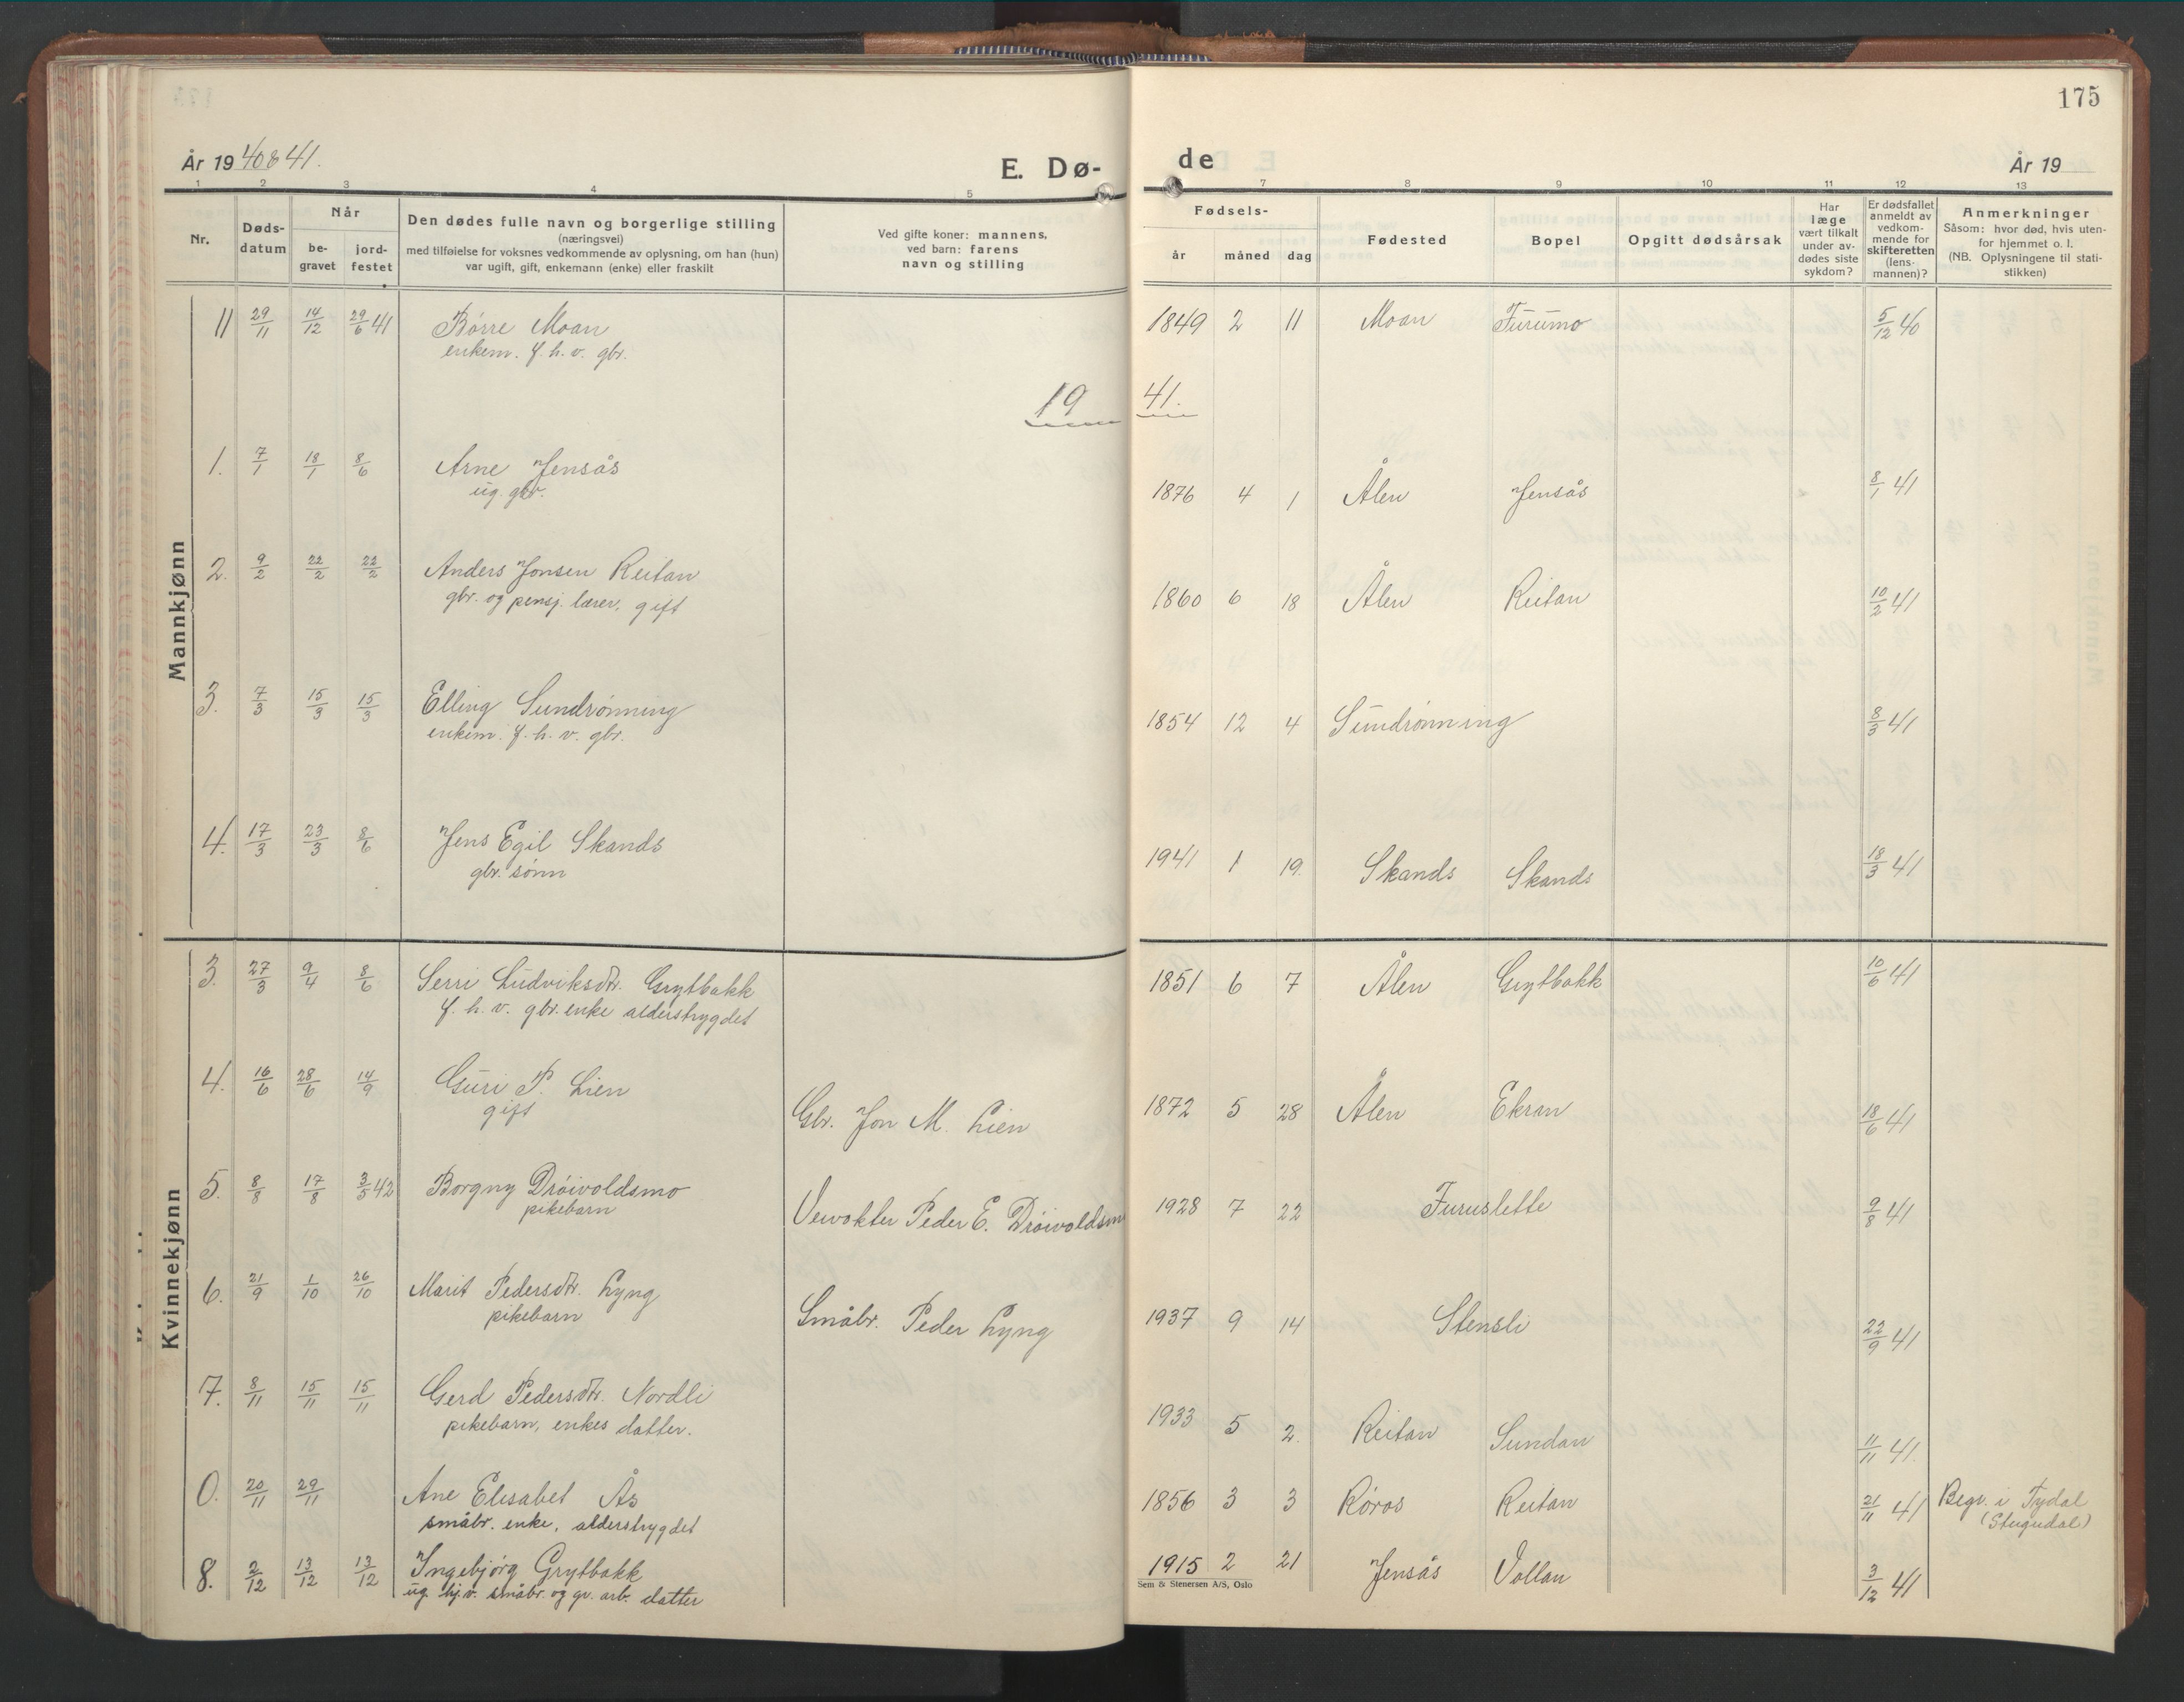 175
År 1940 & 41.
E. Dø-
de
År 19
1 2 3 4 5 7 8 9 10 11 12 13
Nr.
Døds-
datum
Når
be-
gravet
jord-
festet
Den dødes fulle navn og borgerlige stilling
(næringsvei)
med tilføielse for voksnes vedkommende av oplysning, om han (hun)
var ugift, gift, enkemann (enke) eller fraskilt
Ved gifte koner: mannens,
ved barn: farens
navn og stilling
Fødsels-
år måned dag
Fødested
Bopel
Opgitt dødsårsak
Har
læge
vært tilkalt
under av-
dødes siste
sykdom?
Er dødsfallet
anmeldt av
vedkom-
mende for
skifteretten
(lens-
mannen)?
Anmerkninger
Såsom: hvor død, hvis uten-
for hjemmet o. l.
(NB. Oplysningene til stati-
stikken)
Mannkjønn
11 29/11 14/12 29/6 41 Børre Moan 1849 2 11 Moan Furumo 5/12 40
enkem. f. h. v. gbr.
19 41.
1. 7/1 18/1 8/6 Arne Jensås 1876 4 1 Ålen Jensås 8/1 41
ug. gbr.
2. 9/2 22/2 22/2 Anders Jonsen Reitan 1860 6 18 Ålen Reitan 10/2 41
gbr. og pensj. lærer, gift
3. 7/3 15/3 15/3 Elling Sundrønning 1854 12 4 Sundrønning 8/3 41
enkem. f. h. v. gbr.
4. 17/3 23/3 8/6 Jens Egil Skands 1941 1 19. Skands Skands 18/3 41
gbr. sønn
Kvinnekjønn
3. 27/3 9/4 8/6 Serri Ludviksdtr. Grytbakk 1851 6 7 Ålen Grytbakk 10/6 41
f. h. v. gbr. enke alderstrygdet
4. 16/6 28/6 14/9 Guri P. Lien Gbr. Jon M. Lien 1872 5 28 Ålen Ekran 18/6 41
gift
5. 8/8 17/8 3/5 42 Borgny Drøivoldsmo Veivokter Peder E. Drøivoldsm 1928 7 22 Furuslette 9/8 41
pikebarn
6. 21/9 1/10 26/10 Marit Pedersdtr. Lyng Småbr. Peder Lyng 1937 9 14 Stensli 22/9 41
pikebarn
7. 8/11 15/11 15/11 Gerd Pedersdtr. Nordli 1933 5 2. Reitan Sundan 11/11 41.
pikebarn, enkes datter.
0. 20/11 29/11 Ane Elisabet Ås 1856 3 3 Røros Reitan 21/11 41 Begr. i Tydal
småbr. enke, alderstrygdet (Stugudal)
8. 2/12 13/12 13/12 Ingebjørg Grytbakk 1915 2 21 Jensås Vollan 3/12 41
ug. hj.v. småbr. og gr. arb. datter
Sem & Stenersen A/S, Oslo